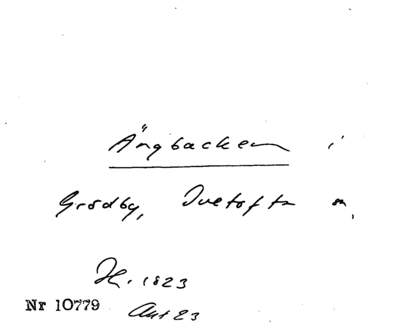 Ängbacken i
Grödby, Ivetofta sn,
H. 1823
Nr 10779
Akt 23